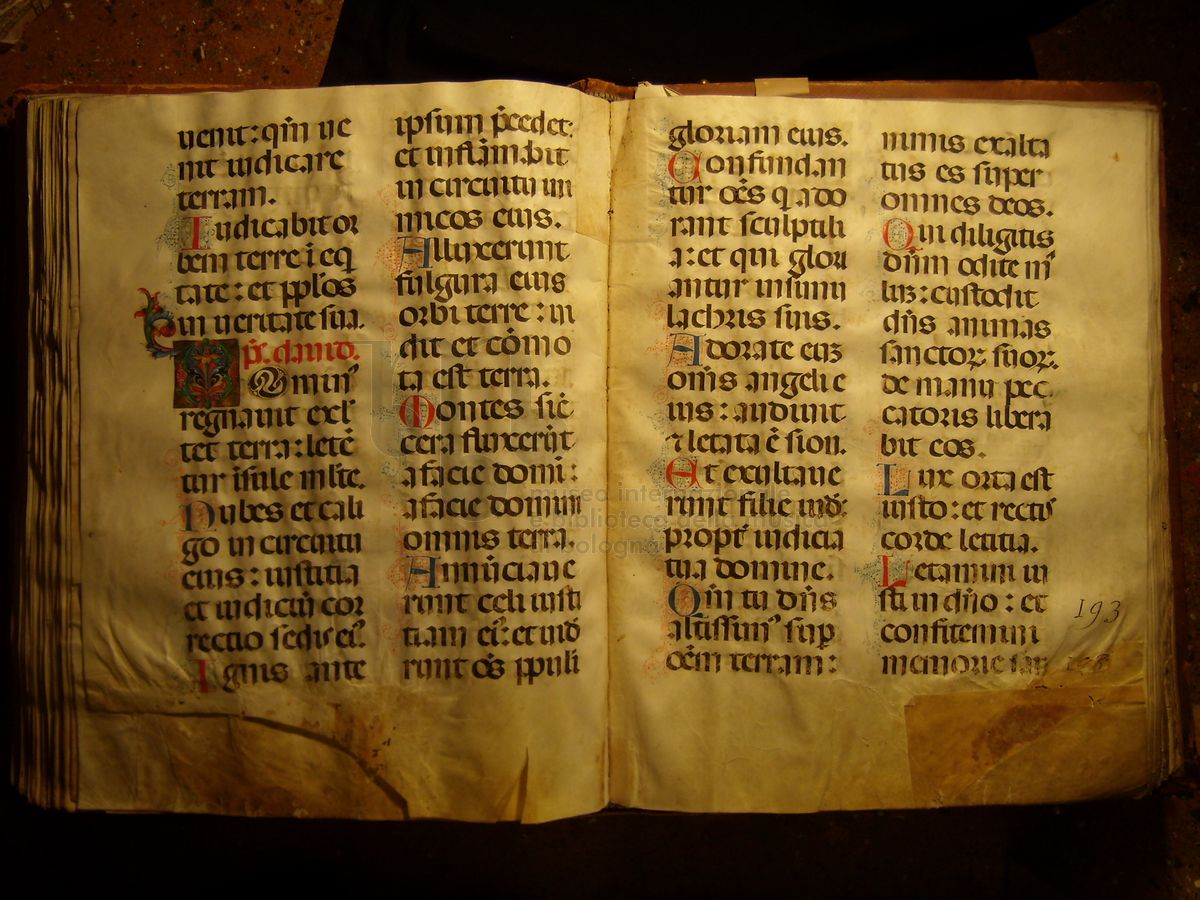 uenit: qm̄ ue
nit iudicare
terram.
Iudicabit or
bem terre ī eq̄
tate: et pp̄l'os
in ueritate sua.
ps̄. dauid.
Dominꝰ
regnauit exl'
tet terra: letē
tur īsule ml'te.
Nubes et cali
go in circuitu
eius: iustitia
et iudiciū cor
rectio sedis eiꝰ.
Ignis ante
ipsum p̄cedet:
et inflām̄abit
in circuitu ini
micos eius.
Alluxerunt
fulgura eius
orbi terre: ui
dit et cōmo
ta est terra.
Montes sic̄
cera fluxerūt
a facie domi:
a facie domini
omnis terra.
Annūciaue
runt celi iusti
tiam eiꝰ: et uid̄
runt oēs ppuli
gloriam eius.
Confundan
tur oēs q ado
rant sculptili
a: et qui glori
antur in simu
lachris suis.
Adorate eūz
om̄s angeli e
ius: audiuit
⁊ letata ē sion.
Et exultaue
runt filie iud̄:
propt̄ iudicia
tua domine.
Qm̄ tu dn̄s
altissimꝰ sup̄
oēm terram:
nimis exalta
tus es super
omnes deos.
Qui diligitis
dn̄m odite mꝰ
luz: custodit
dn̄s animas
sanctoꝝ suoꝝ.
de manu pec
catoris libera
bit eos.
Lux orta est
iusto: et rectꝰ
corde letitia.
Letamini iu
sti in dn̄o: et
confitemini
memorie san
193
193